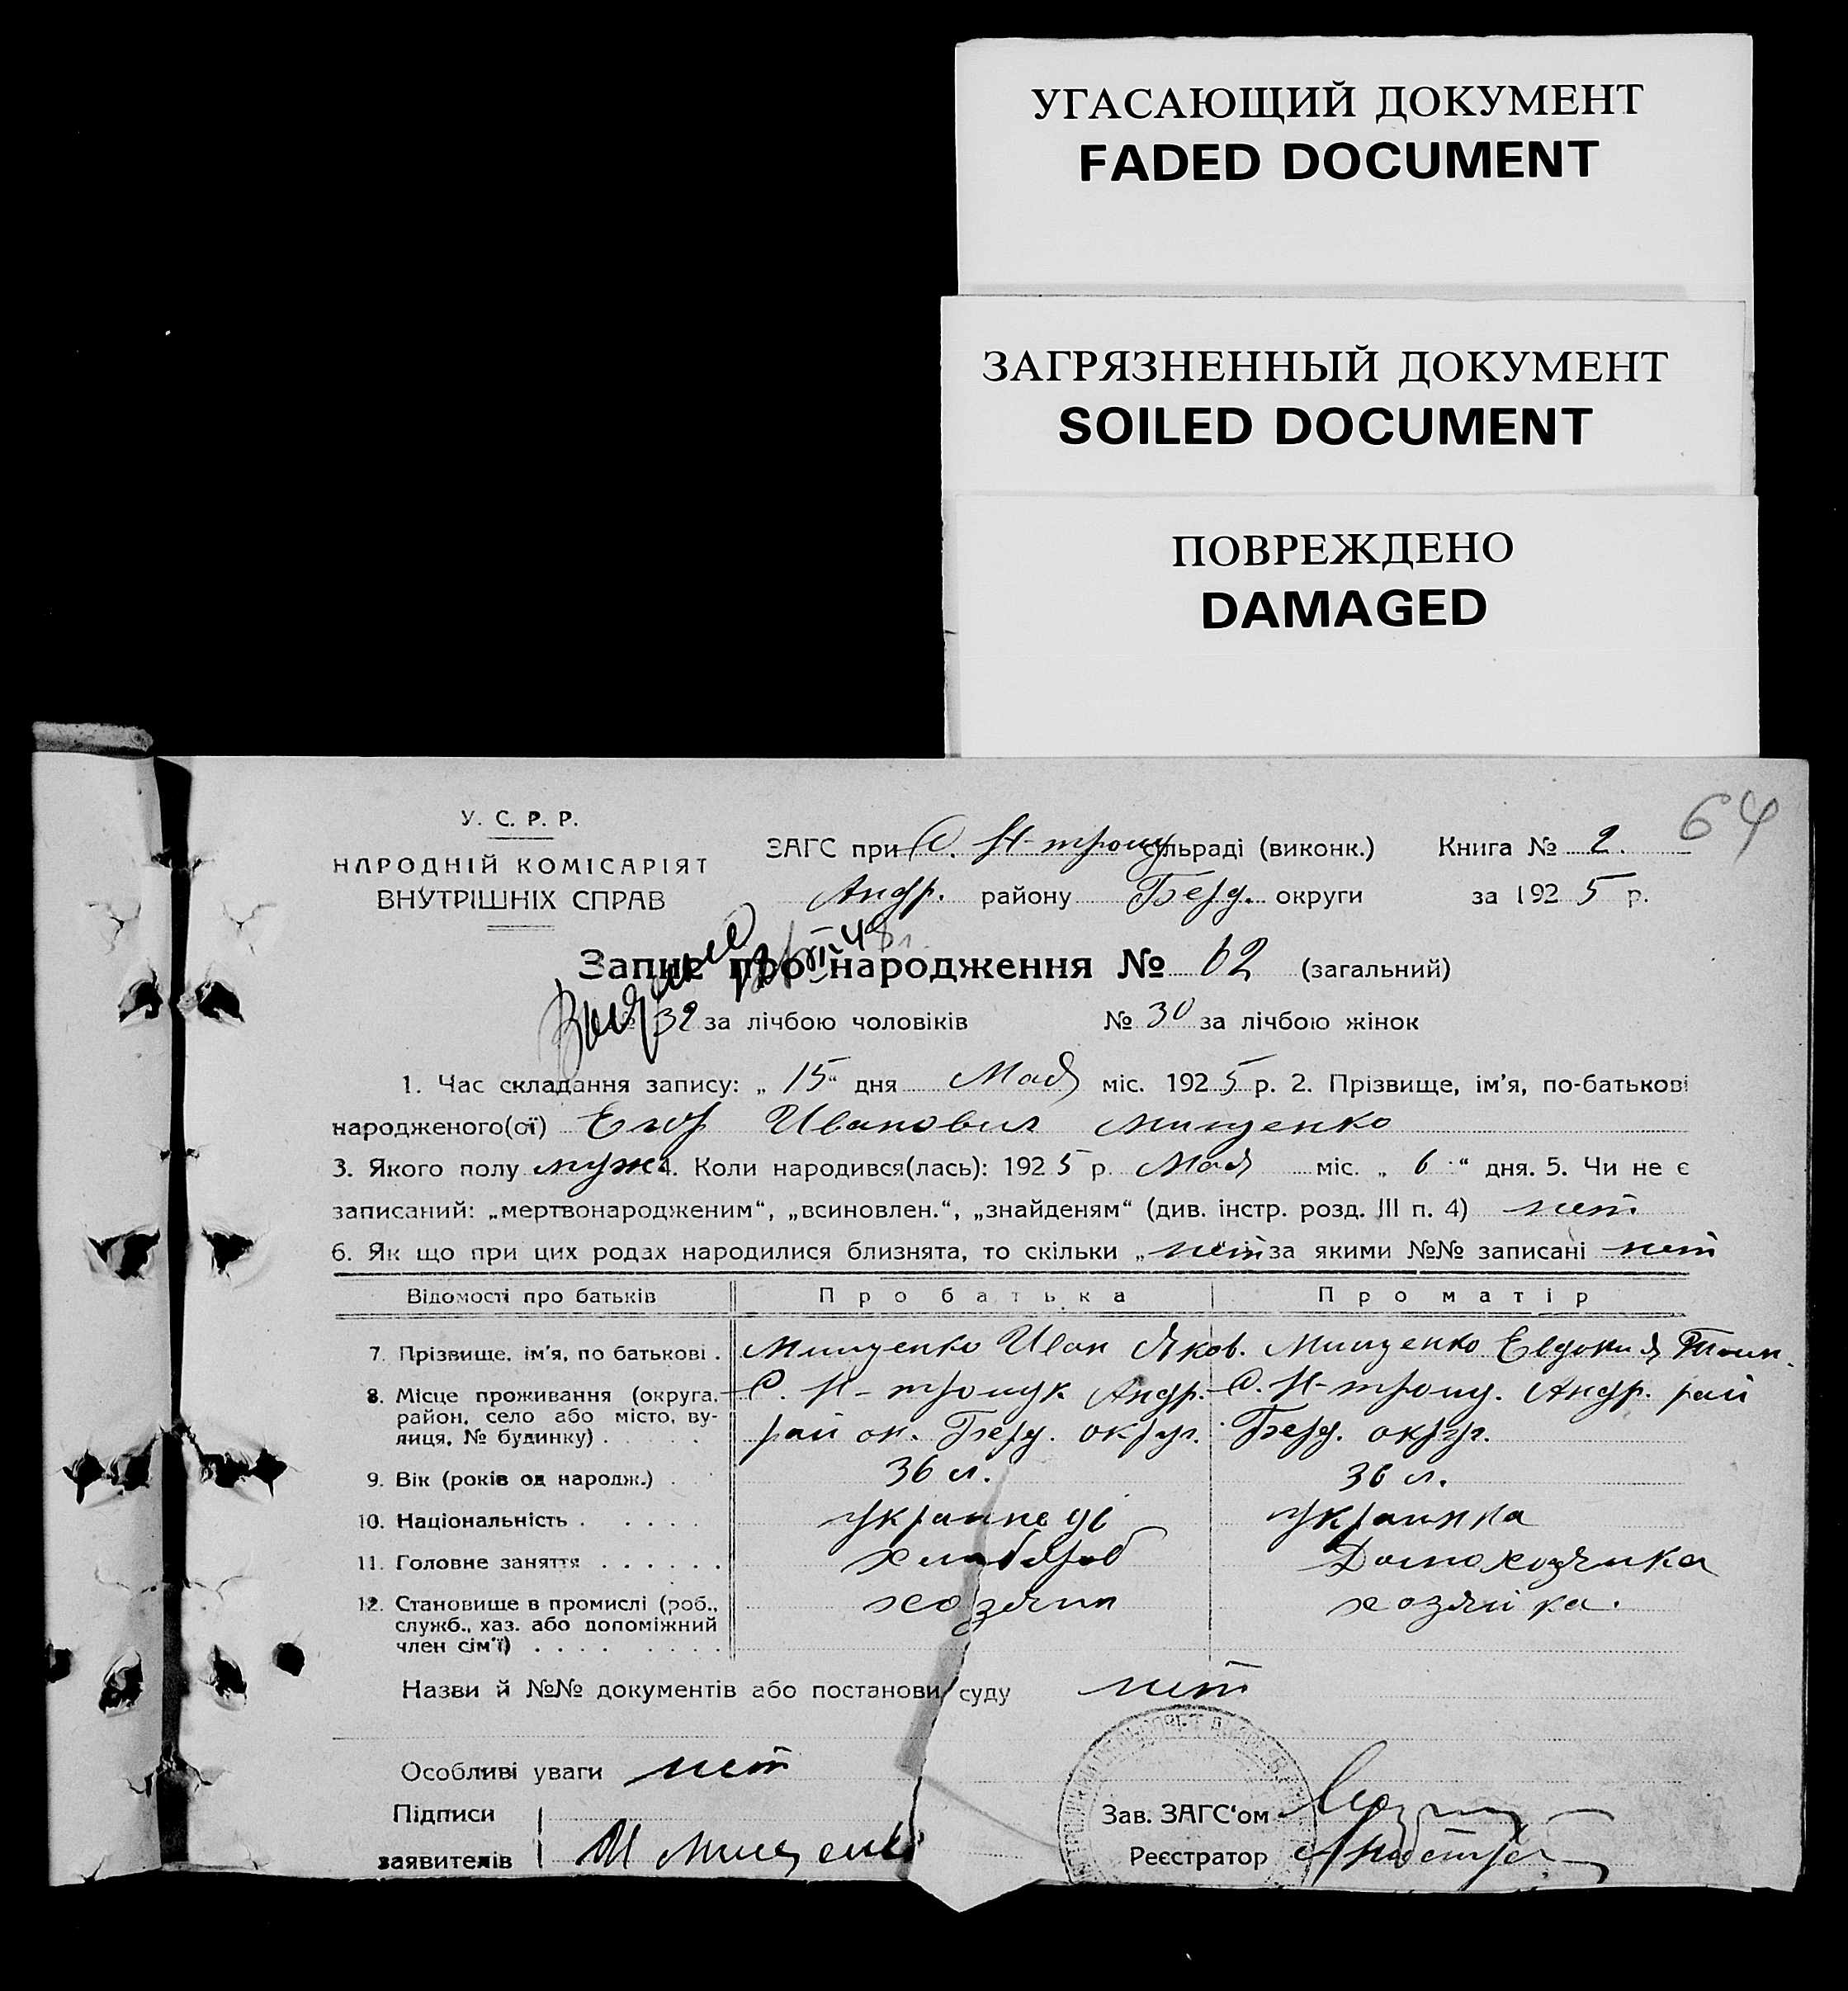 УГАСАЮЩИЙ ДОКУМЕНТ
FADED DOCUMENT
ЗАГРЯЗНЕННЫЙ ДОКУМЕНТ
SOILED DOCUMENT
ПОВРЕЖДЕНО
DAMAGED
64
У. С. Р. Р.
НАРОДНІЙ КОМІСАРІЯТ
ВНУТРІШНІХ СПРАВ
ЗАГС при С. Н-троиц сільраді (виконк.) Книга № 2.
Андр. району Берд. округи за 1925 р.
Запис про народження № 62 (загальний)
№ 32 за лічбою чоловіків № 30 за лічбою жінок
1. Час складання запису: „15“ дня Мая міс. 1925 р. 2. Прізвище, ім’я, по-батькові
народженого(ої) Егор Иванович Мищенко
3. Якого полу муж 4. Коли народився(лась): 1925 р. Мая міс. „ 6 “ дня. 5. Чи не є
записаний: „мертвонародженим“, „всиновлен.“, „знайденям“ (див. інстр. розд. III п. 4) нет.
6. Як що при цих родах народилися близнята, то скільки „ нет за якими №№ записані нет
Відомості про батьків Про батька Про матір
7. Прізвище, ім’я, по батькові . Мищенко Иван Яков. Мищенко Евдокия
8. Місце проживання (округа, С. Н-троицк. Андр. С. Н-троиц. Андр. рай
район, село або місто, ву-
лиця, № будинку) . район. Берд. округ. Берд. округ.
9. Вік (років од народж.) . 36 л. 36 л.
10. Національність . . . . . украинець украинка
11. Головне заняття . . . . . . хлебороб Домохозяйка
12. Становище в промислі (роб., хозяин хозяйка.
служб., хаз. або допоміжний
член сім’ї) . . . . . . . .
Назви й №№ документів або постанови суду нет
Особливі уваги нет
Підписи Зав. ЗАГС‘ом
заявителів И Мищенко Реєстратор